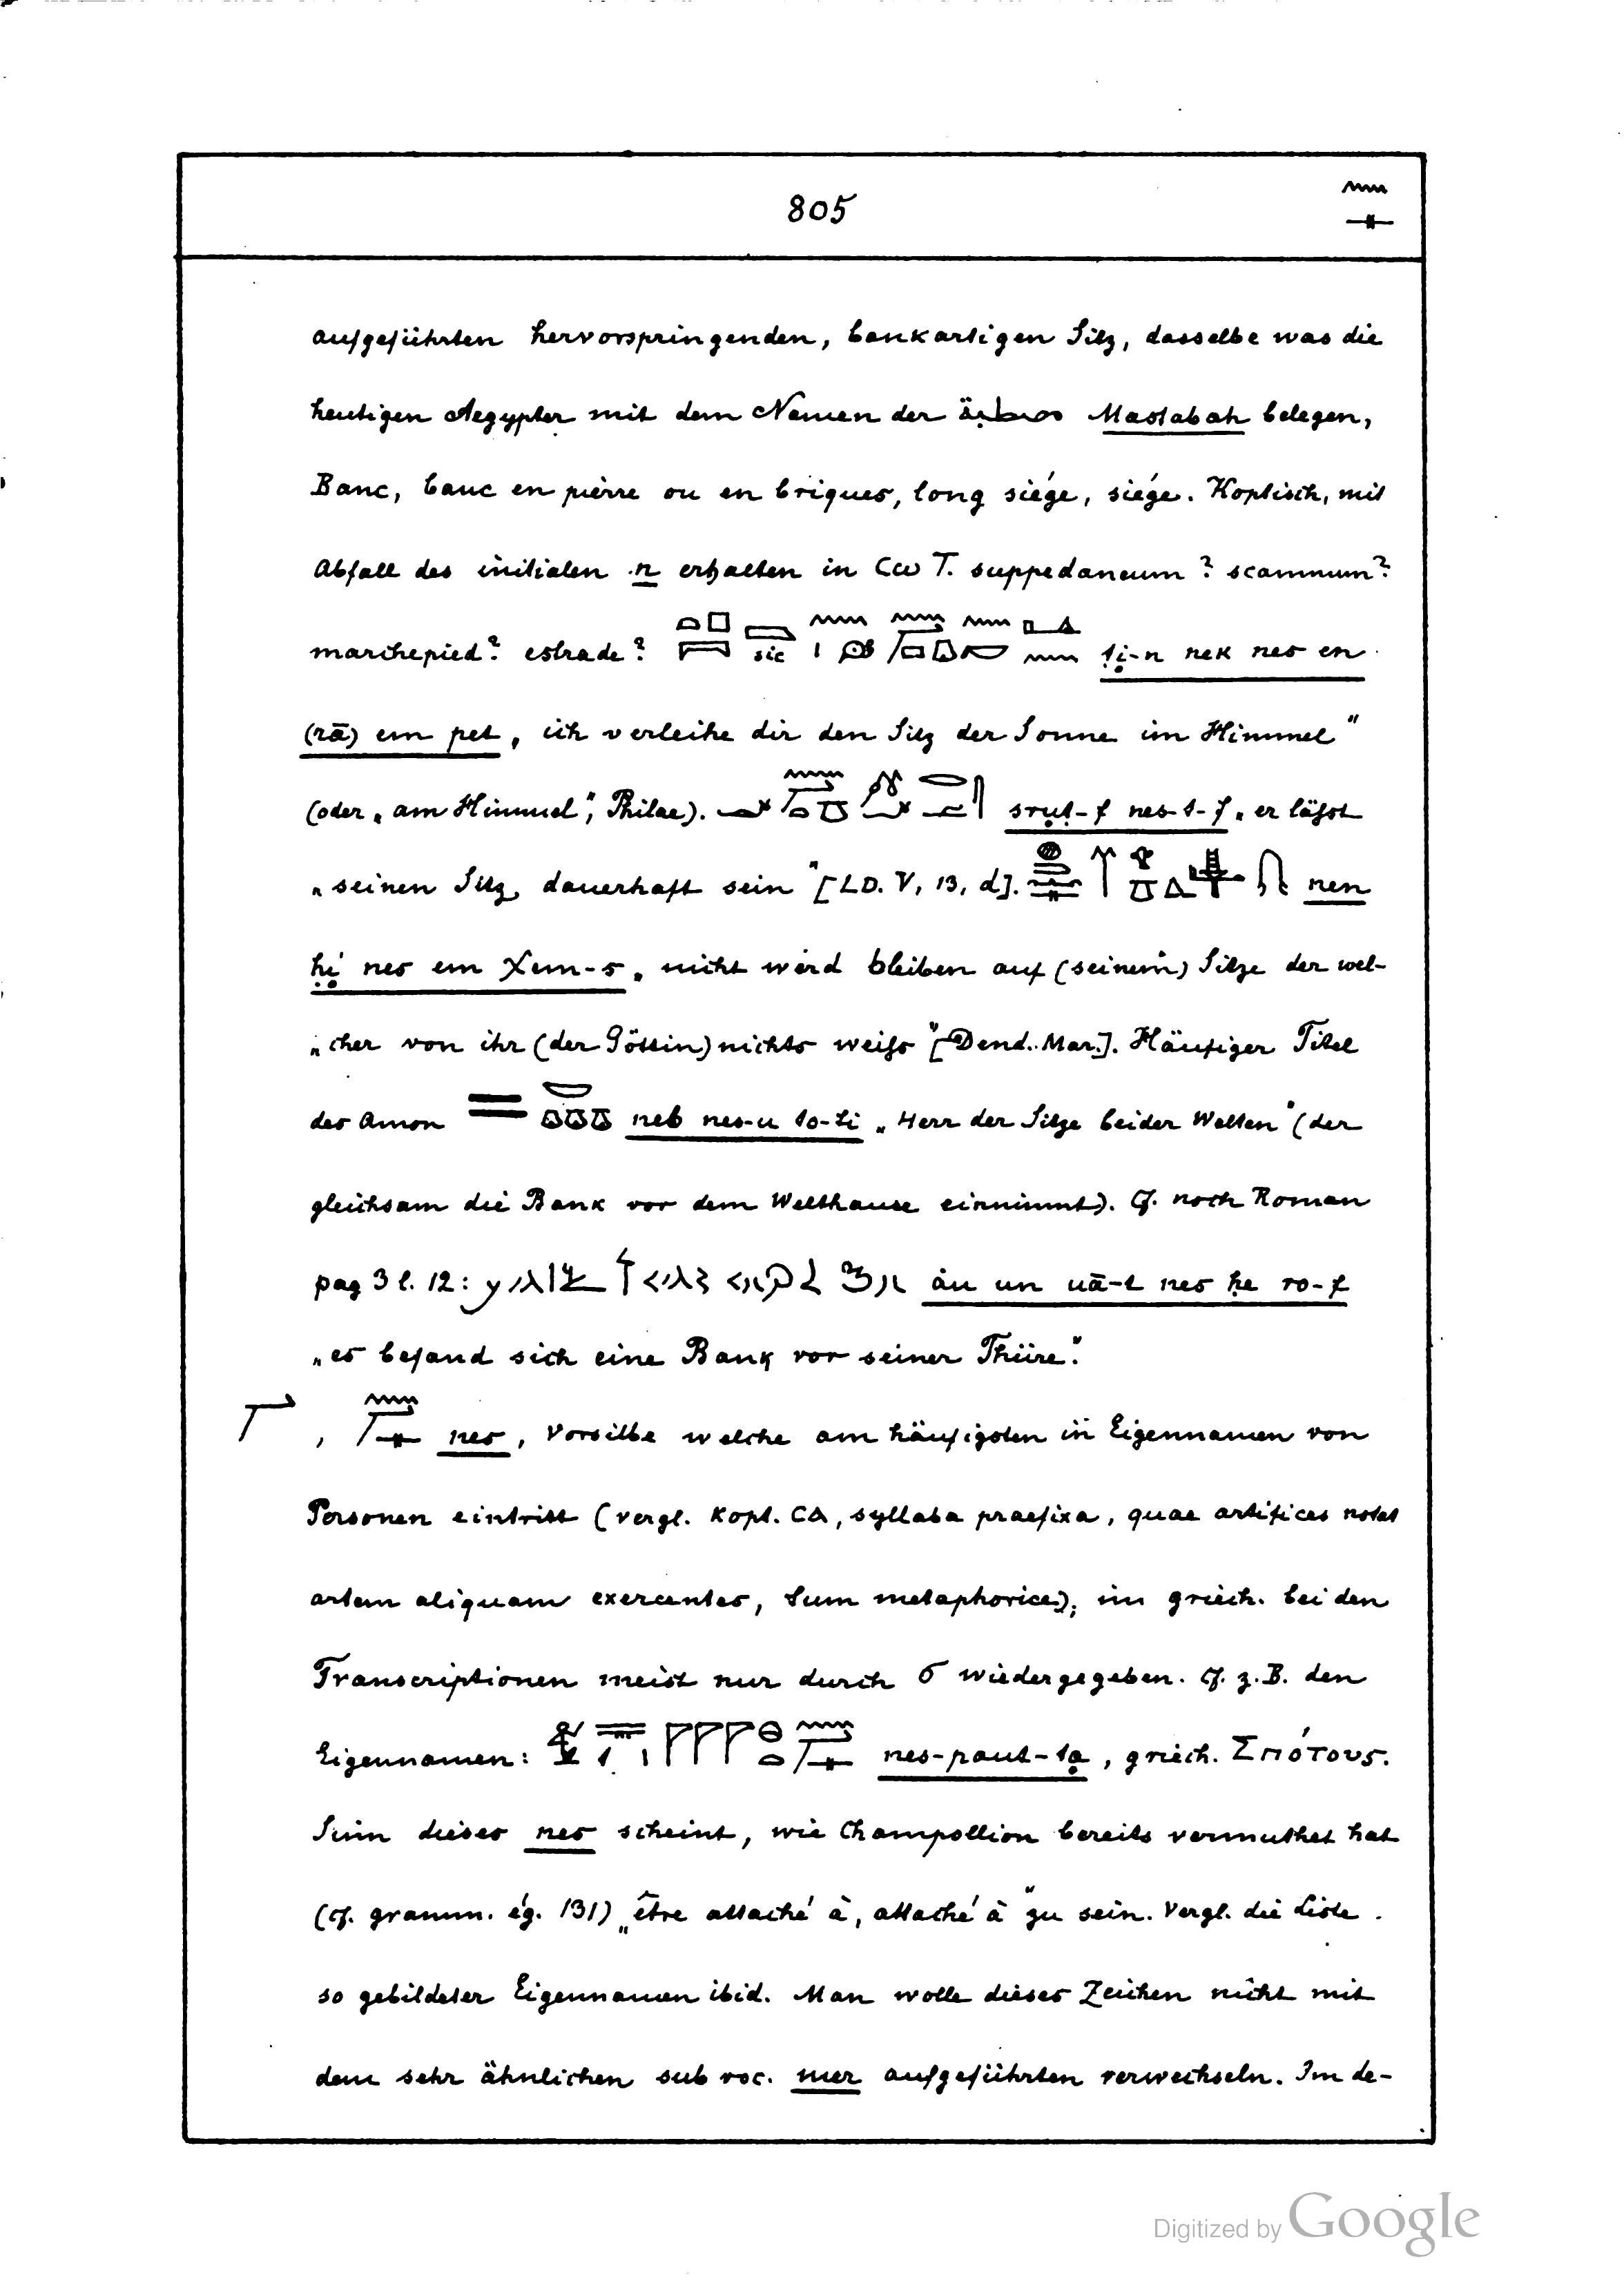 805
aufgeführten hervorspringenden, bankartigen Sitz, dasselbe was die
heutigen Aegypter mit dem Namen der مصطبة Mastabah belegen,
Banc, banc en pierre ou en briques, long siége, siége. Koptisch, mit
Abfall des initialen n erhalten in ⲥⲱ T. suppedaneum? scamnum?
marchepied? estrade? sic ṭị-n nek nes en
(rā) em pet „ich verleihe dir den Sitz der Sonne im Himmel"
(oder „am Himmel", Philae). sruṭ-f nes-t-f „er läfst
„seinen Sitz dauerhaft sein" [LD. V, 13, d]. nen
ḥị nes em χem-s „nicht wird bleiben auf (seinem) Sitze der wel-
„cher von ihr (der Göttin) nichts weifs" [Dend. Mar.]. Häufiger Titel
des Amon neb nes-u to-ti „Herr der Sitze beider Welten" (der
gleichsam die Bank vor dem Welthause einnimmt). Cf. noch Roman
pag 3 l. 12: áu un uā-t nes ḥe ro-f
„es befand sich eine Bank vor seiner Thüre".
, nes, Vorsilbe welche am häufigsten in Eigennamen von
Personen eintritt (vergl. Kopt. ⲥⲁ, syllaba praefixa, quae artifices notat
artem aliquam exercentes, tum metaphorice), im griech. bei den
Transcriptionen meist nur durch σ wiedergegeben. Cf. z. B. den
Eigennamen: nes-paut-tạ, griech. Σπότους.
Sinn dieses nes scheint, wie Champollion bereits vermuthet hat
(cf. gramm. ég. 131) „être attaché à, attaché à" zu sein. Vergl. die Liste
so gebildeter Eigennamen ibid. Man wolle dieses Zeichen nicht mit
dem sehr ähnlichen sub voc. mer aufgeführten verwechseln. Im de-
Digitized by Google